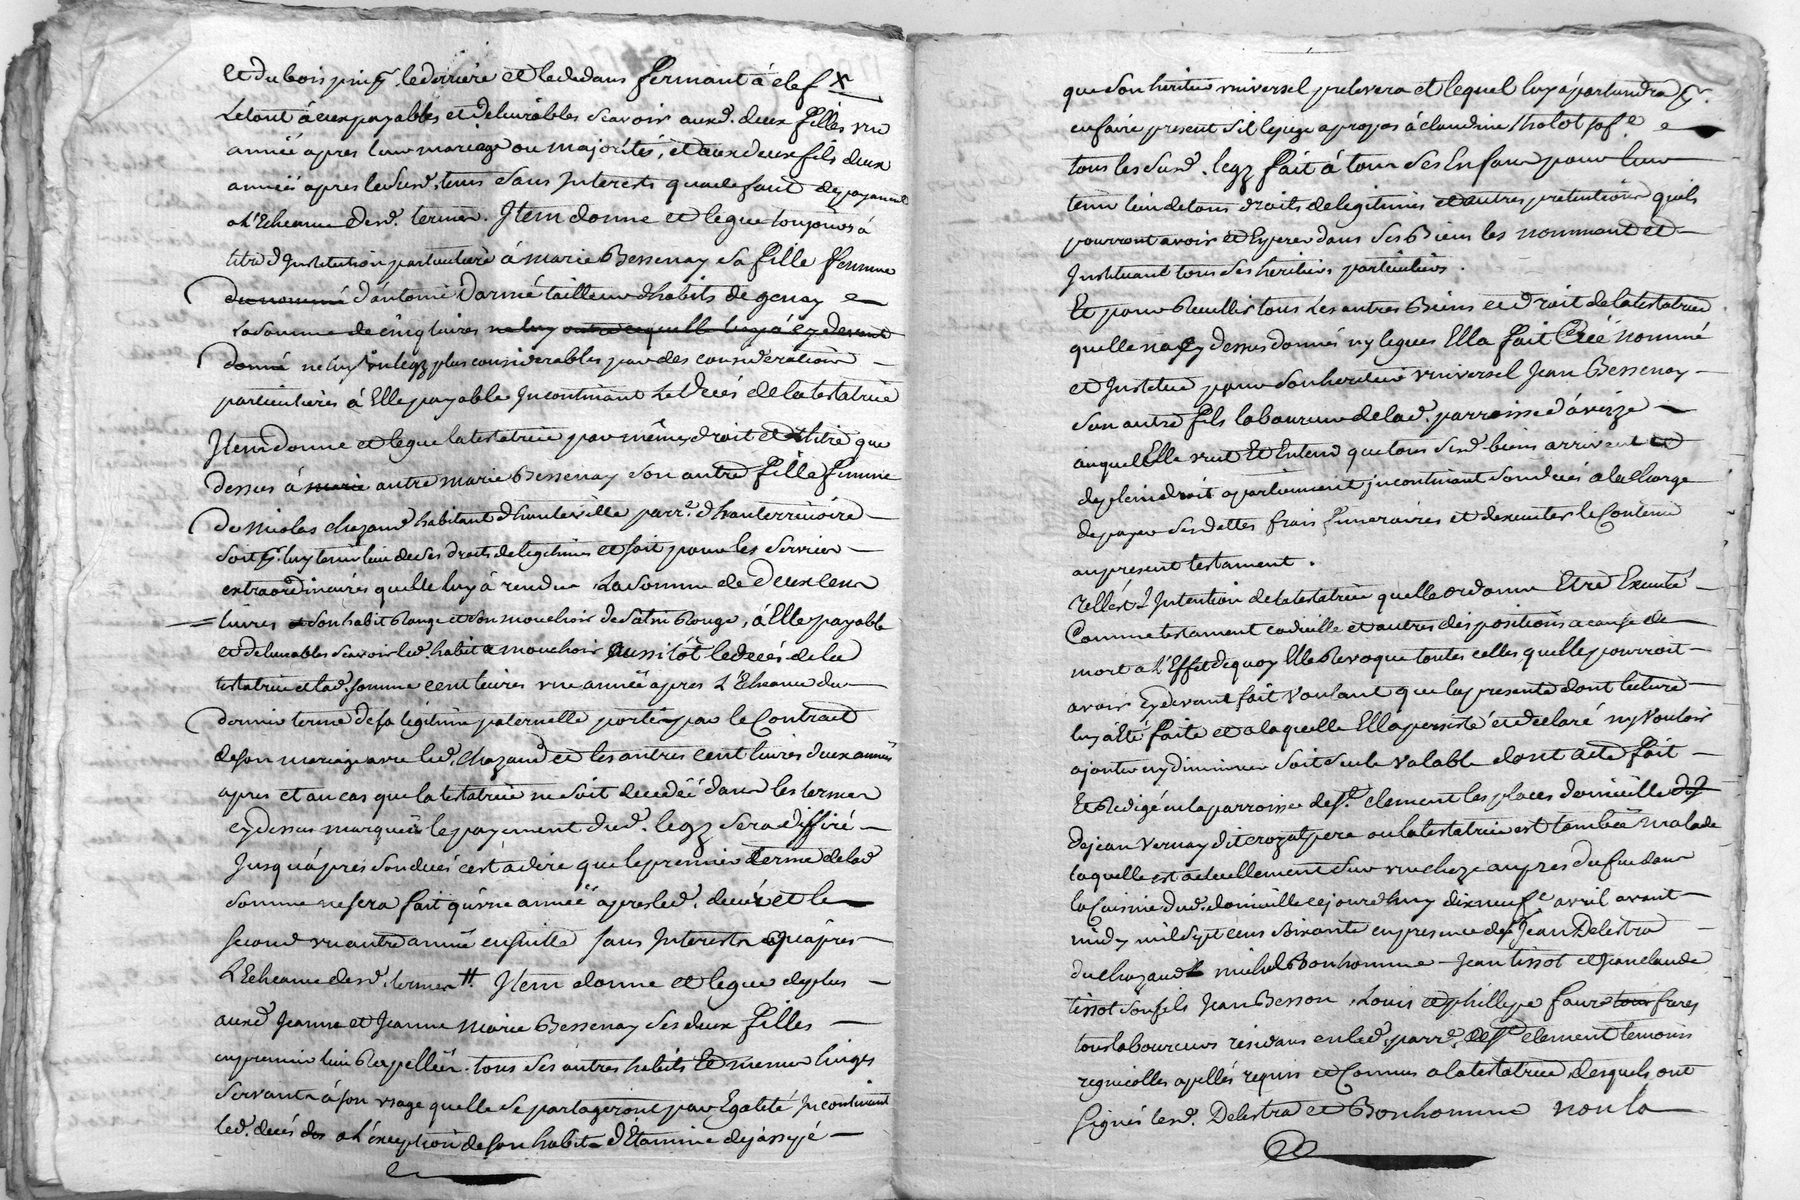 et du bois pin le derriere et le dedans fermant á clef x
Le tout á eux payables et deliurables Scavoir auxd. deux filles vne
année apres leur mariage ou majorités, et aux deux fils deux
années apres le dernier, tems Sans Interests qu'a defaut de payement
a l'Echeance desd. termes. Item donne et legue toujours á
titre d'Institution particuliere á marie Bessenay Sa fille femme
du nommé d'antoine Darmé tailleur d'habits de genay
La Somme de cinq liures ne luy outre ce quelle luy á cy devant
donné ne luy vn legz plus considerables par des considerations
particulieres á Elle payable Incontinant Le Décés de la testatrice
Item donne et legue la testatrice par même droit et titre que
dessus á marie autre marie Bessenay Son autre fille femme
de Nicolas chazaud habitant d'hauteville parr.e d'hauterivoire
Soit p. luy tenir lieu de Ses droits de legitimes et Soit pour les Services
extraordinaires quelle luy á rendue La Somme de deux Cens
liures et Son habit Rouge et Son mouchoir de Satin Rouge, á Elle payable
et deliurables Scavoir led. habit & mouchoir Aussitôt le decés de la
testatrice et lad. Somme cent liures vne année apres L'Echeance du
dernier terme de Sa legitime paternelle portée par le Contrat
de Son mariage avec led. Chazaud et les autres cent liures deux années
apres et au cas que la testatrice ne Soit decedée dans les termes
cy dessus marqués le payement dud. legz Sera differé
Jusqu'aprés Son decés c'est a dire que le premier terme de lad.
Somme ne Sera fait qu'vne année apres led. decés et le
Second vn autre année ensuitte Sans Interests qu'apres
L'Echeance desd. termes # Item donne et legue de plus
auxd. Jeanne et Jeanne Marie Bessenay Ses deux filles
en premier lieu Rapellées tous Ses autres habits et menus linges
Servants á Son vsage quelle Se partageront par Egalité Incontinant
led. decés des a l'exception de Son habit d'Etamine
que Son heritier vniversel prelevera et lequel luy apartiendra p.
en faire present S'il le juge apropos á claudine Tholot Sa f.e
tous les Susd. legz fait á tous Ses Enfans pour leur
tenir lieu de tous droits de legitimes et autres pretentions quils
pourront avoir et Esperer dans Ses Biens les nommant et
Instituant tous Ses heritiers particuliers.
Et pour Recuellir tous Les autres Biens et droit de la testatrice
quelle na cy dessus donnés ny legues Elle fait Créé nommé
et Institue pour Son heritier vniversel Jean Bessenay
Son autre fils laboureur de lad. parroisse d'aveize
auquel Elle veut Et Entend que tous Sesd. biens arrivent et
de plein droit apartiennent incontinant Son decés a la charge
de payer Ses dettes frais funeraires et d'executer le Contenu
au present testament.
Telle est L'Intention de la testatrice quelle ordonne Etre Executé
Comme testament codicille et autres dispositions a cause de
mort a L'Effet de quoy Elle Revoque toutes celles quelle pourroit
avoir cy devant fait Voulant que la presente dont lecture
luy á Eté faite et a laquelle Ella persisté et declaré ny Vouloir
ajouter ny diminuer Soit Seule Valable dont acte fait
Et Redigé en la parroisse de St. Clement les places domicille
de jean Vernay dit crozat pere ou la testatrice est tombée malade
laquelle est actuellement Sur vne chaize aupres du feu dans
la Cuisine dud. domicille cejourdhuy dix neuf avril avant
midy mil Sept cens Soixante en presence de Jean Delestra
du chazaud michel Bonhomme Jean tissot et Jean claude
tissot Son fils Jean Besson, Louis et phillype faure tous freres
tous laboureurs residans en lad. parr.e de St. clement temoins
regnicolles apellés requis et Connus a la testatrice, desquels ont
Signés lesd. Delestra et Bonhomme non la